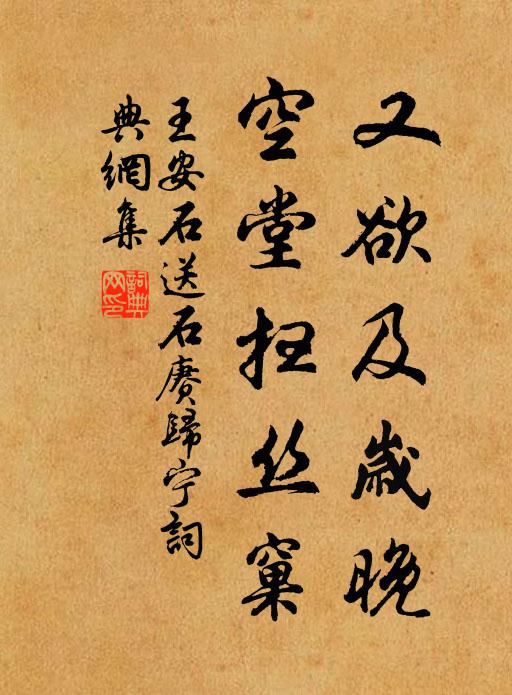 又欲及歲晚
空堂扫丝窠
王安石送石赓歸宁詞
典網集
詞典网印